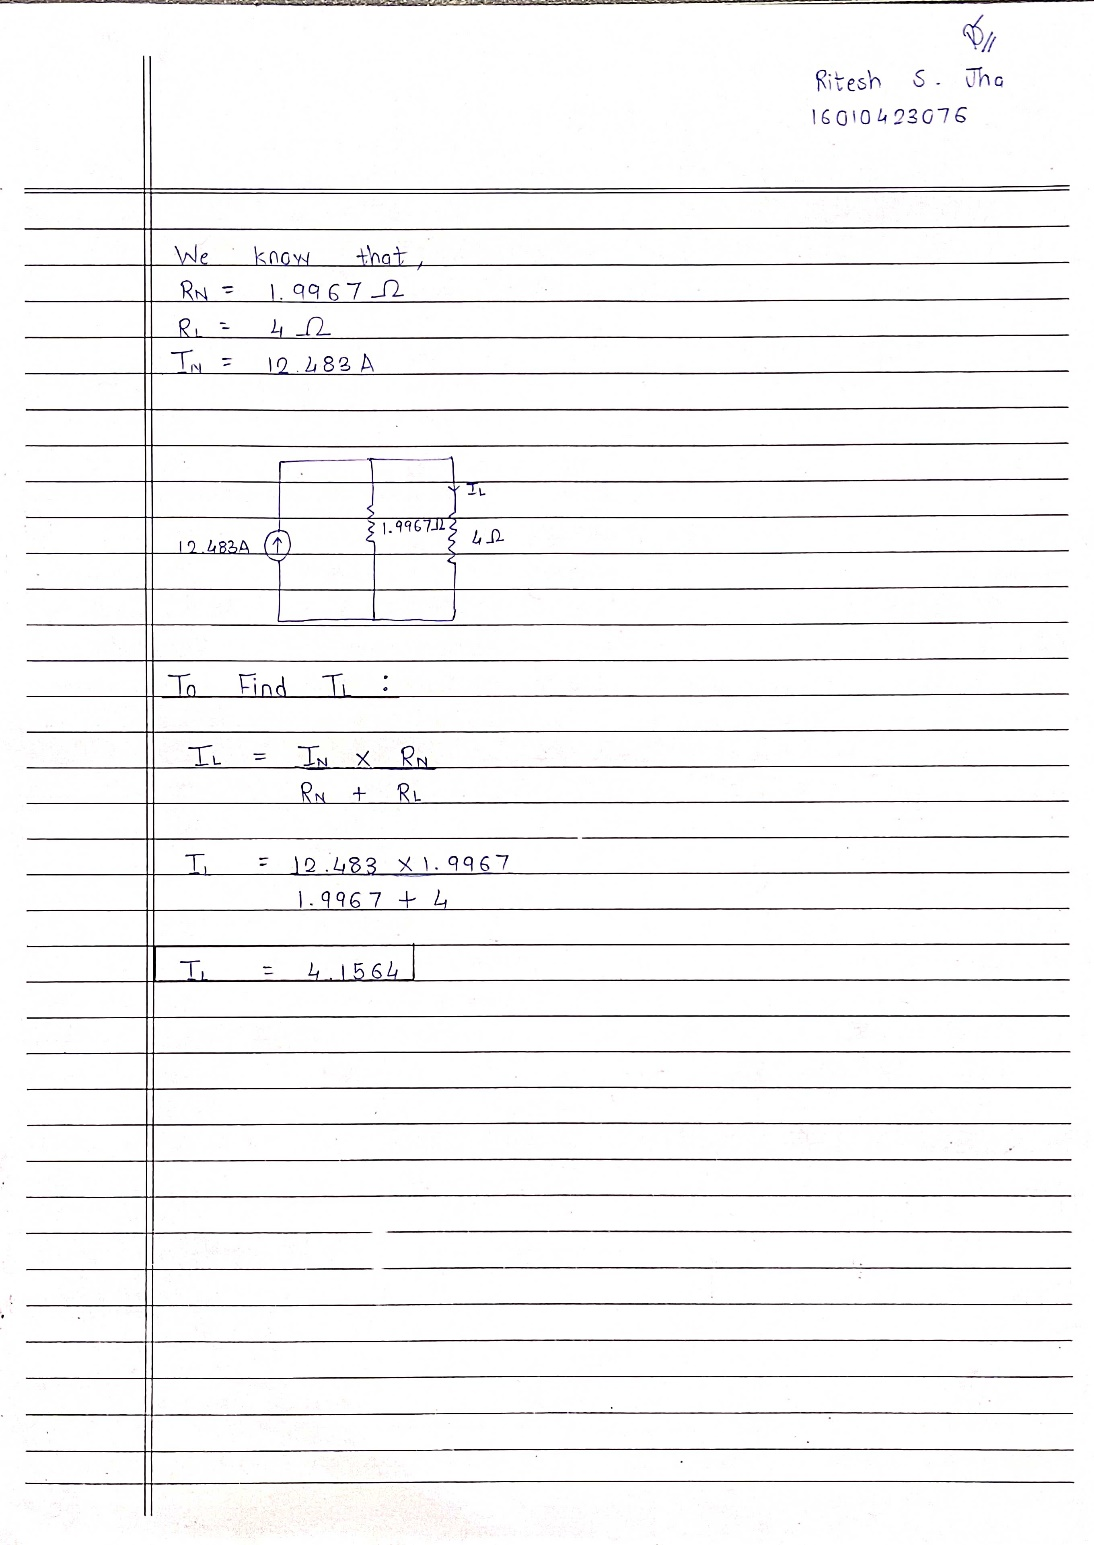 Ritesh S. Jha
16010423076
We know that,
RN = 1.9967 Ω
RL = 4 Ω
IN = 12.483 A
IL
1.9967Ω
4Ω
12.483A
To Find IL :
IL = IN × RN
RN + RL
IL = 12.483 × 1.9967
1.9967 + 4
IL = 4.1564